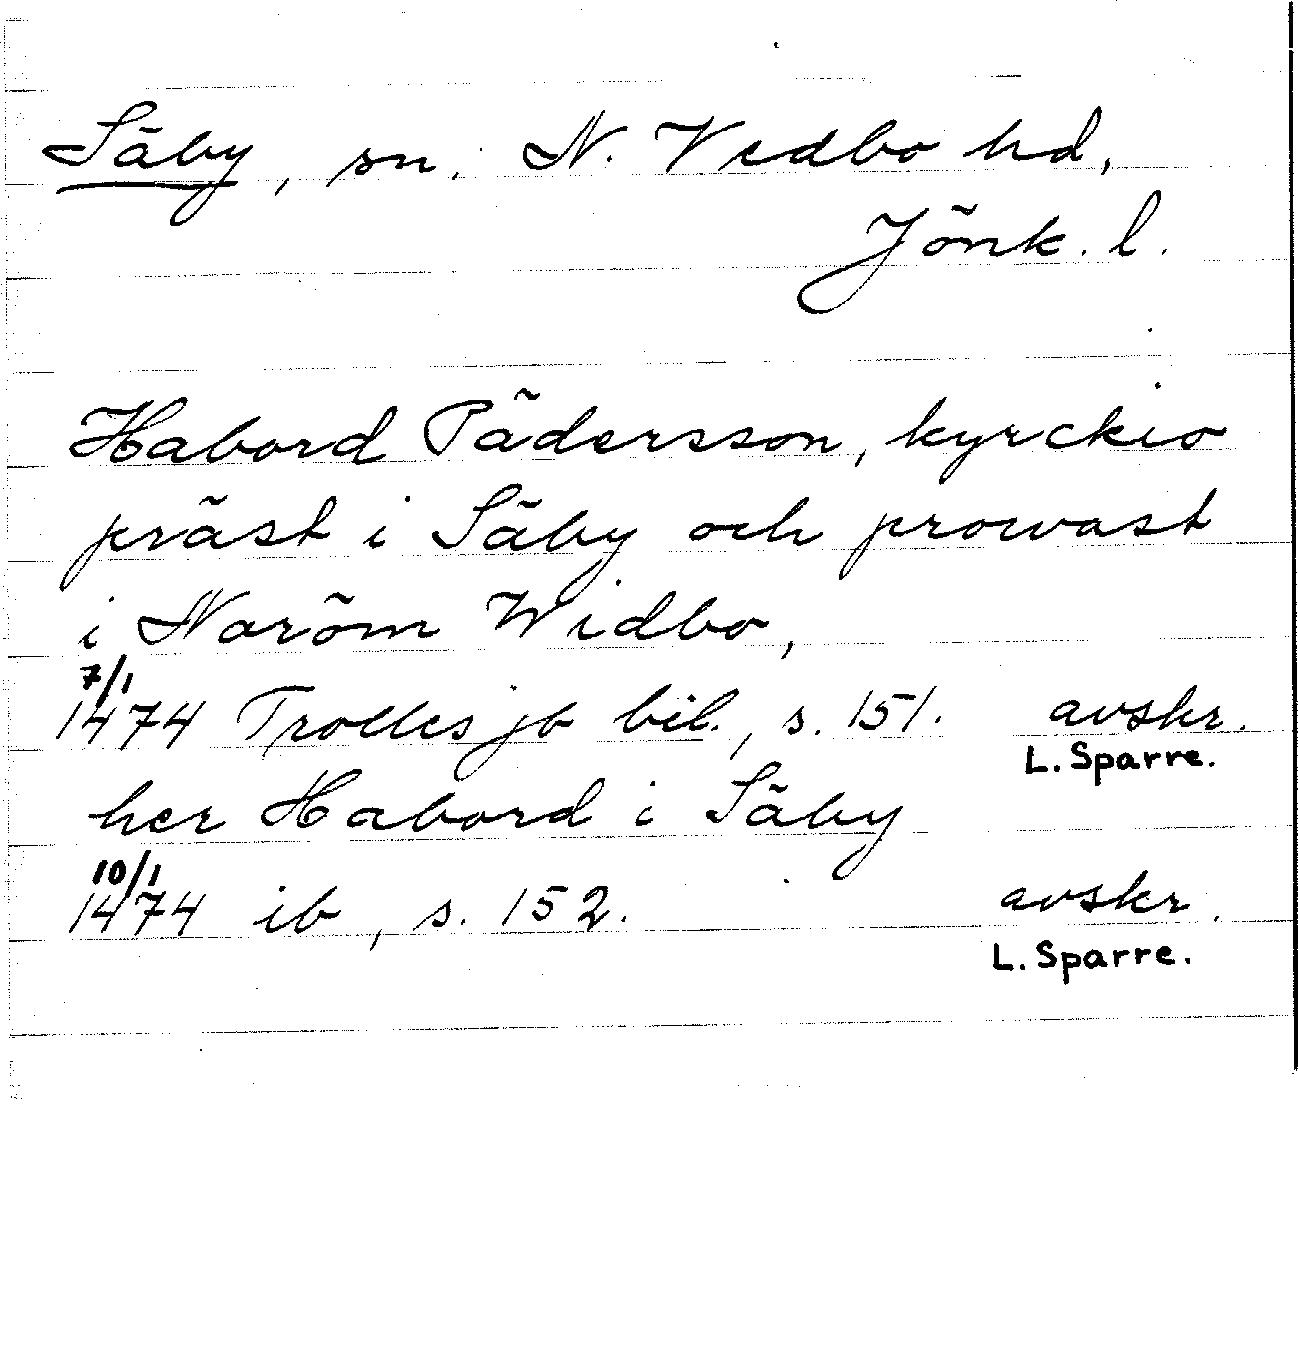 Säby, sn. N. Vedbo hd,
Jönk. l.
Habord Pädersson, kyrckio
präst i Säby och prowast
i Naröm Widbo,
7/1
1474 Trolles jb bil., s. 151. avskr.
L. Sparre.
her Habord i Säby
10/1
1474 ib, s. 152. avskr.
L. Sparre.